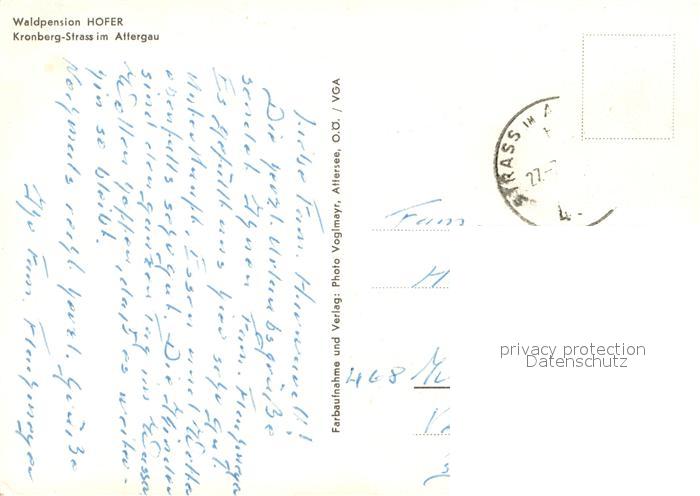 Waldpension HOFER
Kronberg-Strass im Attergau
Liebe Fam.
Die herzl. Urlaubsgrüße
sendet Ihnen Fam.
Es gefällt uns hier sehr gut.
Unterkunft, Essen und Wetter
ebenfalls sehr gut. Die Kinder
sind den ganzen Tag im Wasser.
Wollen hoffen, daß es weiter-
hin so bleibt.
Nochmals recht herzl. Grüße
Ihre Fam.
Farbaufnahme und Verlag: Photo Voglmayr, Attersee, O.Ö. / VGA
STRASS IM A
27.
4
Fam
H
468
privacy protection
Datenschutz